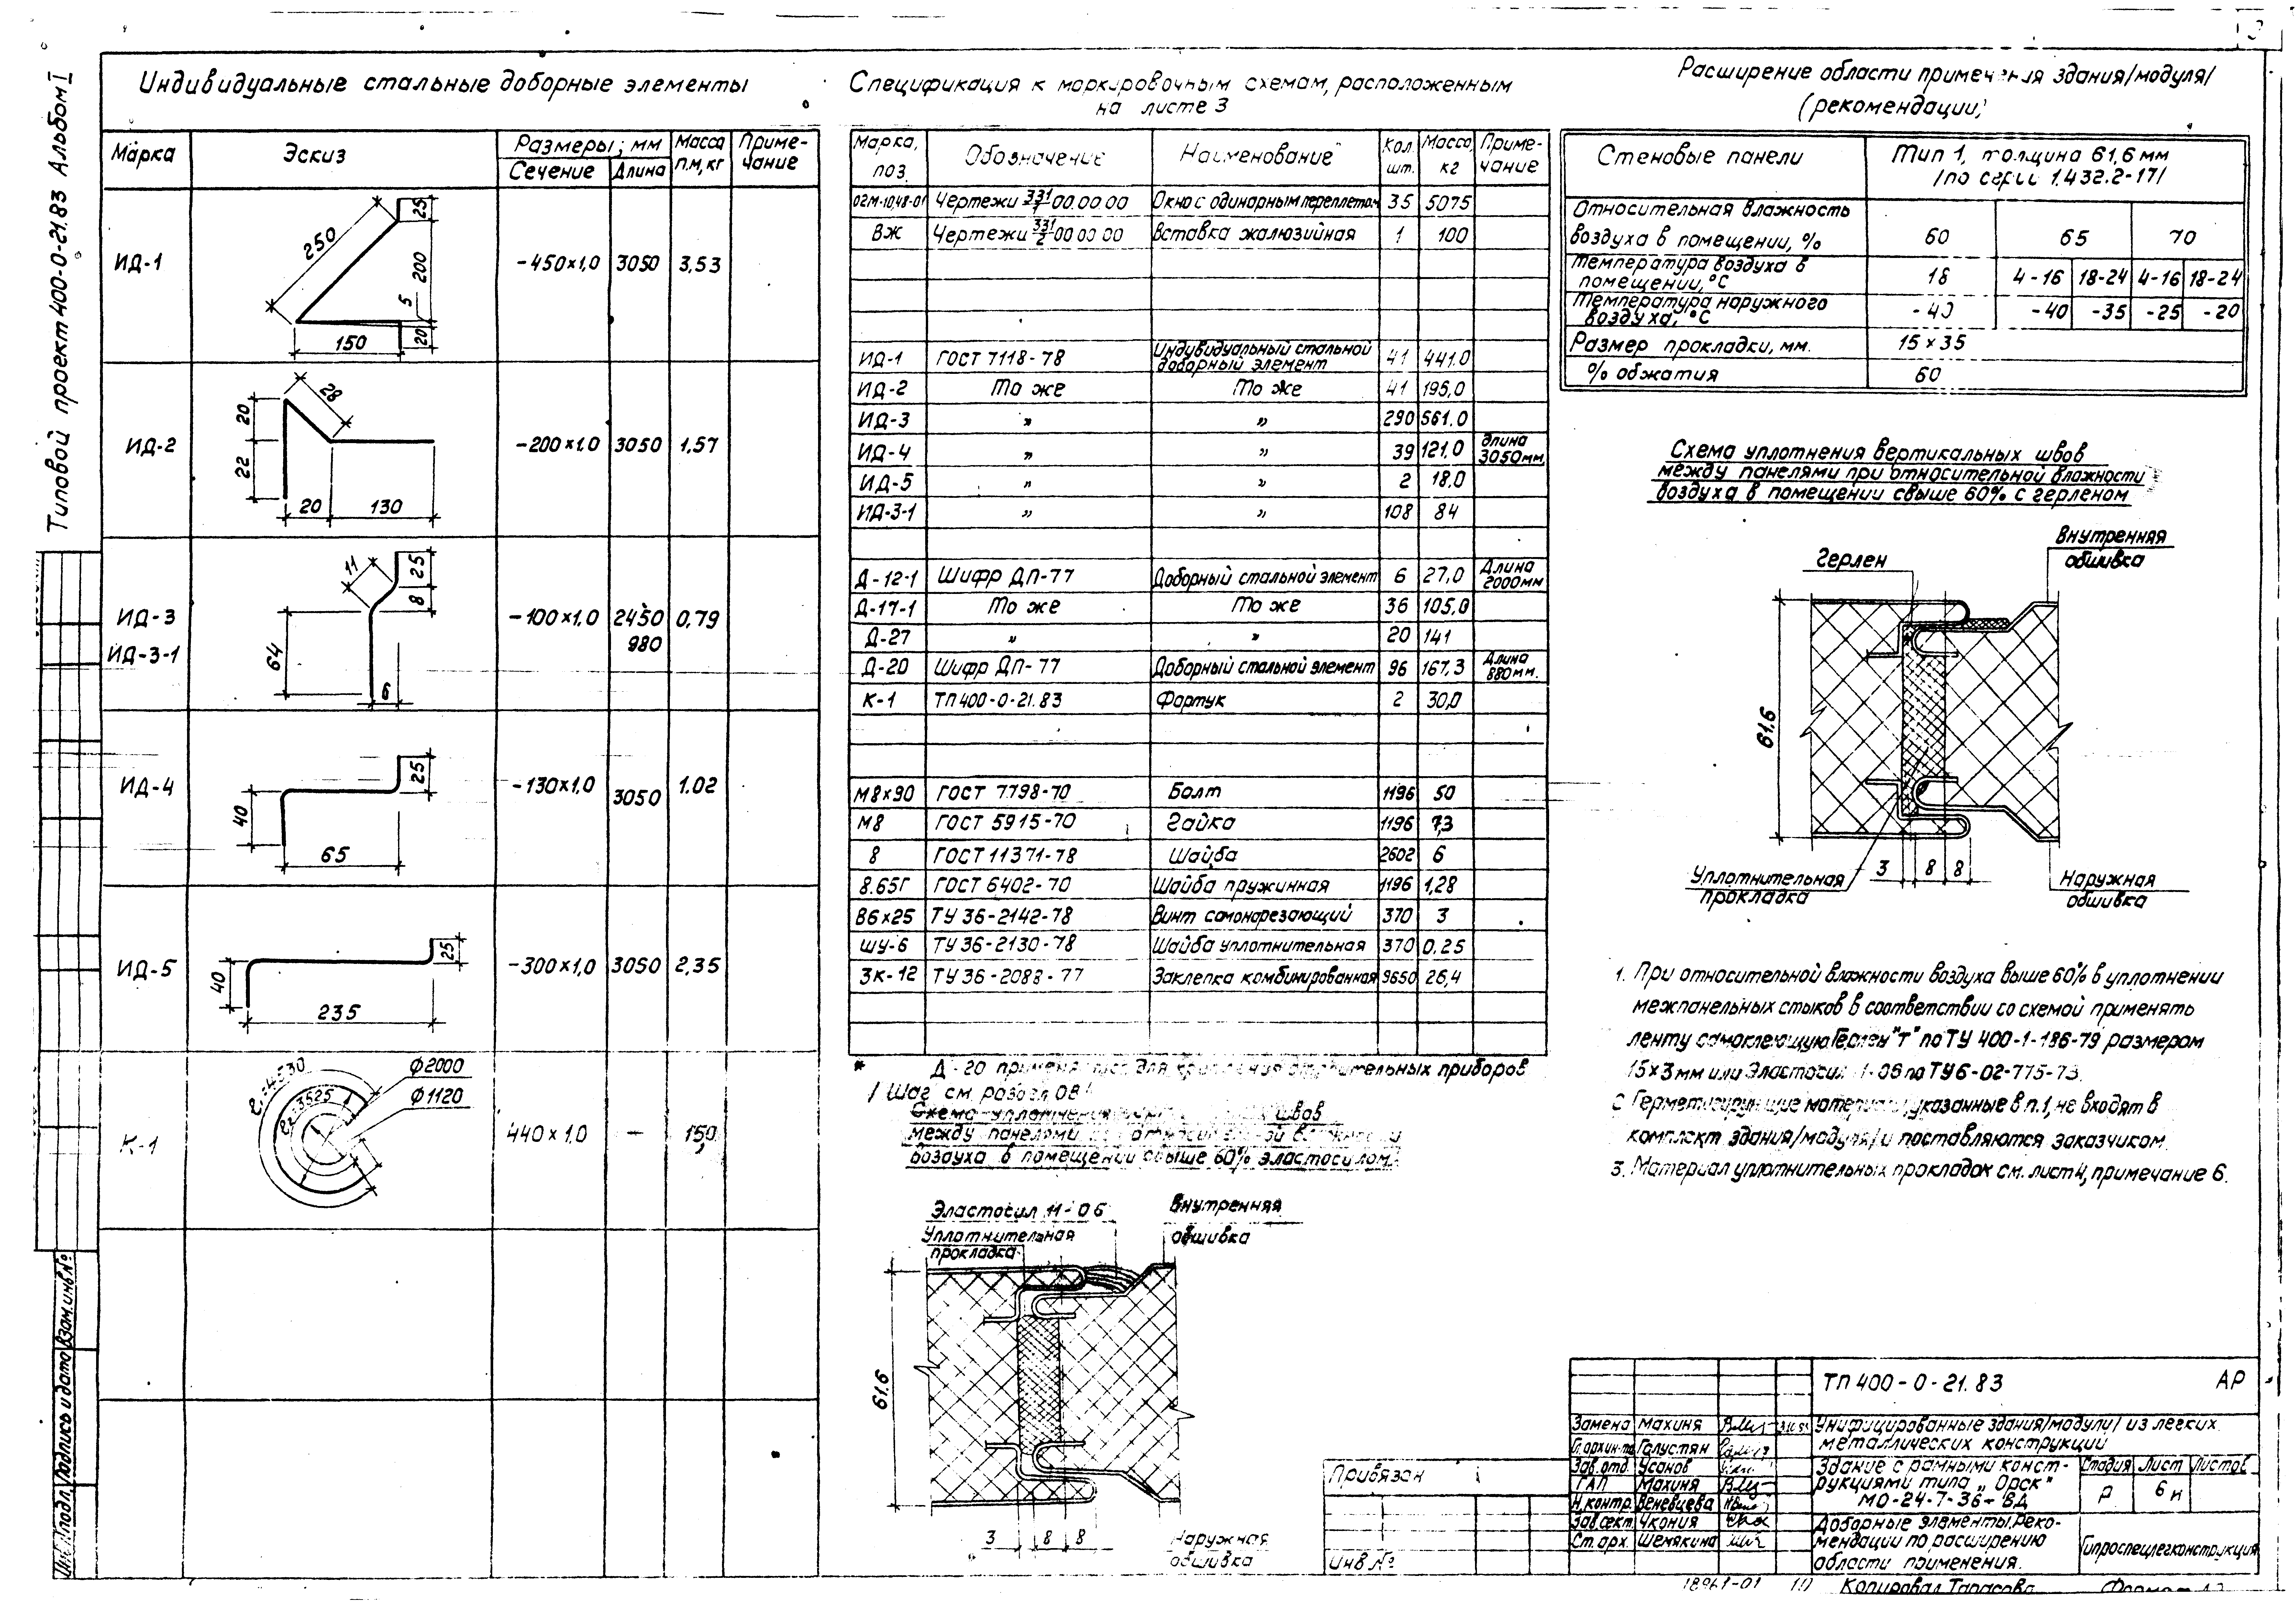 3
Типовой проект 400-0-21.83 Альбом I
Индивидуальные стальные доборные элементы
Марка Эскиз Размеры; мм Масса п.м, кг Примечание
Сечение Длина
ИД-1 250 25 200 5 20 150 -450×1,0 3050 3,53
ИД-2 20 28 22 20 130 -200×1,0 3050 1,57
ИД-3 11 25 8 64 6 -100×1,0 2450 0,79
ИД-3-1 980
ИД-4 25 40 65 -130×1,0 3050 1.02
ИД-5 25 40 235 -300×1,0 3050 2,35
К-1 ϕ2000 ϕ1120 440×1.0 — 15,0
Спецификация к маркировочным схемам, расположенным
на листе 3
Марка, поз. Обозначение Наименование Кол. шт. Масса, кг Примечание
Чертежи 331/1 00.00 00 Окно с одинарным переплетом 35 5075
ВЖ Чертежи 331/2 00 00 00 Вставка жалюзийная 1 100
ИД-1 ГОСТ 7118-78 Индивидуальный стальной доборный элемент 41 441.0
ИД-2 То же То же 41 195,0
ИД-3 " " 290 561.0
ИД-4 " " 39 121,0 Длина 3050мм
ИД-5 " " 2 18.0
ИД-3-1 " " 108 84
Д-12-1 Шифр ДП-77 Доборный стальной элемент 6 27,0 Длина 2000мм
Д-17-1 То же То же 36 105,0
Д-27 " " 20 141
Д-20 Шифр ДП-77 Доборный стальной элемент 96 167,3 Длина 880мм.
К-1 ТП 400-0-21.83 Фартук 2 30,0
М8×90 ГОСТ 7798-70 Болт 1196 50
М8 ГОСТ 5915-70 Гайка 1196 7,3
8 ГОСТ 11371-78 Шайба 2602 6
8.65Г ГОСТ 6402-70 Шайба пружинная 1196 1,28
В6×25 ТУ 36-2142-78 Винт самонарезающий 370 3
ШУ-6 ТУ 36-2130-78 Шайба уплотнительная 370 0.25
ЗК-12 ТУ 36-2088-77 Заклепка комбинированная 9650 26,4
* Д-20 для приборов
/ Шаг см.
Схема
между панелями
воздуха в помещении свыше 60% эластосилом
Эластосил 11-06
Уплотнительная
прокладка
Внутренняя
обшивка
61.6
3 8 8
Наружная
обшивка
Расширение области применения здания/модуля/
(рекомендации)
Стеновые панели Тип 1, толщина 61,6 мм /по серии 1.432.2-17/
Относительная влажность воздуха в помещении, % 60 65 70
Температура воздуха в помещении, °С 18 4-16 18-24 4-16 18-24
Температура наружного воздуха, °С -40 -40 -35 -25 -20
Размер прокладки, мм. 15×35
% обжатия 60
Схема уплотнения вертикальных швов
между панелями при относительной влажности
воздуха в помещении свыше 60% с герленом
Герлен
Внутренняя
обшивка
61,6
Уплотнительная
прокладка
3 8 8
Наружная
обшивка
1. При относительной влажности воздуха выше 60% в уплотнении
межпанельных стыков в соответствии со схемой применять
ленту самоклеющую Герлен "Т" по ТУ 400-1-186-79 размером
15×3 мм или Эластосил 11-06 по ТУ6-02-775-73.
2 Герметизирующие материалы, указанные в п.1, не входят в
комплект здания/модуля/ и поставляются заказчиком.
3. Материал уплотнительных прокладок см. лист 4, примечание 6.
ТП 400-0-21.83 АР
Замена Махиня
Гл. архит-р Галустян
Зав.отд. Усанов
ГАП Махиня
Н.контр. Веневцева
Зав.сект. Чкония
Ст.арх. Шемякина
Унифицированные здания/модули/ из легких
металлических конструкций
Здание с рамными конст-
рукциями типа „Орск"
МО-24-7-36-ВД
Стадия Лист Листов
Р 6н
Доборные элементы. Реко-
мендации по расширению
области применения.
Гипроспецлегконструкция
Привязан
Инв №
Инв.№ подл. Подпись и дата Взам.инв.№
18961-01 10 Копировал Тарасова Формат